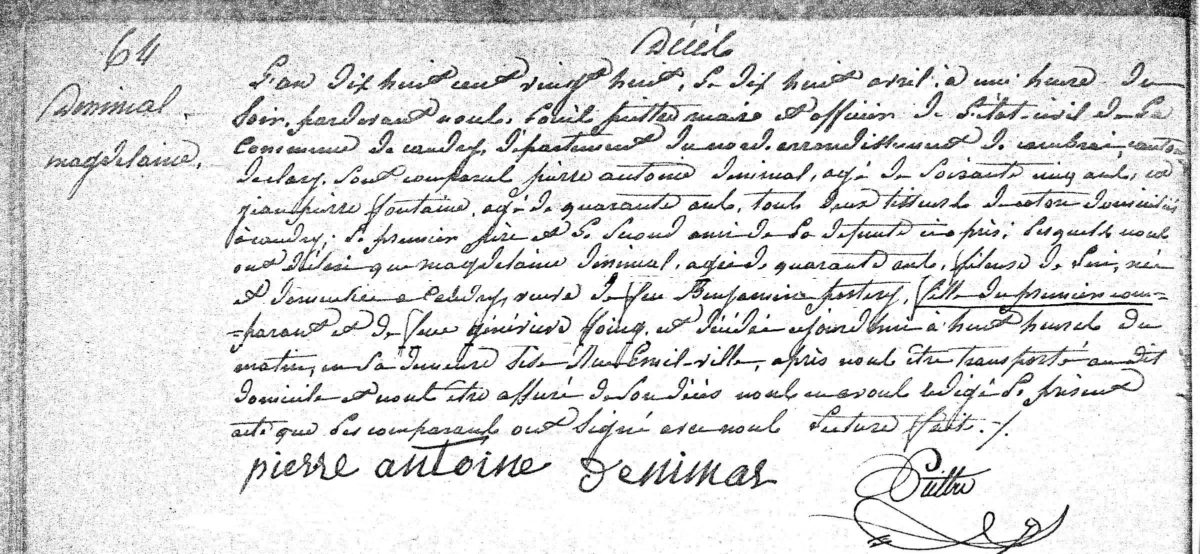 64
Décès
Denimal
magdelaine.
L'an dix huit cent vingt huit, le dix huit avril à une heure du
soir, pardevant nous, puittre maire et officier de l'état-civil de la
Commune de caudry, département du nord, arrondissement de cambrai, canton
de clary, sont comparus pierre antoine denimal, agé de soixante cinq ans, et
jean pierre fontaine, agé de quarante ans, tous deux tisseurs de coton domiciliés
à caudry; le premier père et le second ami de la defunte ci après; lesquels nous
ont déclaré que magdelaine denimal, agée de quarante ans, fileuse de lin, née
et domiciliée à Caudry, veuve de feu Benjamin, fille du premier com-
-parant et de feue généviève, est décédée aujourd'hui à huit heures du
matin, en sa demeure sise Rue, après nous être transporté au dit
domicile et nous être assuré de son décès nous en avons rédigé le présent
acte que les comparans ont signé avec nous lecture faite ./.
pierre antoine denimal
Puittre